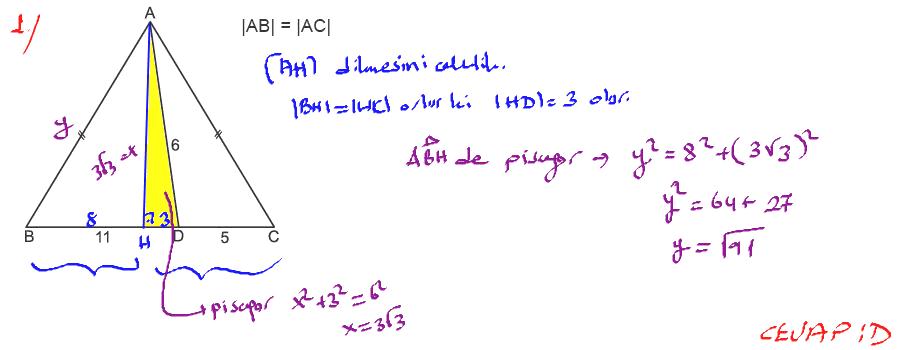 1/
A
|AB| = |AC|
[AH] dikmesini çizelim.
|BH|=|HC| olur ki |HD|=3 olur.
y
3√3=x
6
ABH de pisagor → y²=8²+(3√3)²
y²=64+27
y=√91
8 3
B 11 H D 5 C
pisagor x²+3²=6²
x=3√3
CEVAP:D